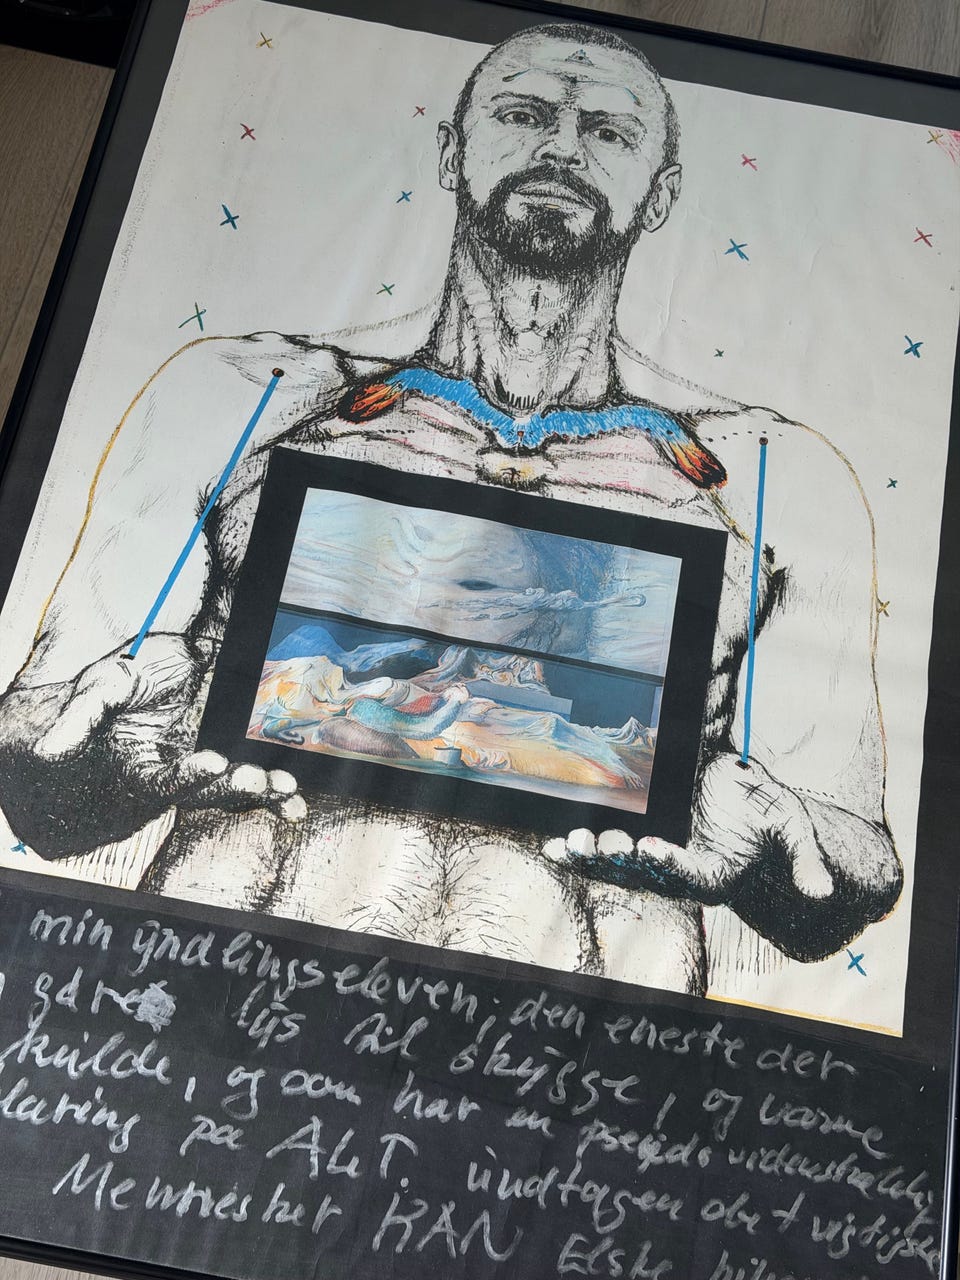 min yndlingselev, den eneste der
gøre lys til skygge, og varme
kulde, og som har en pseudovidenskabelig
klaring på ALT. undtagen det vigtigste
Mennesket KAN Elske